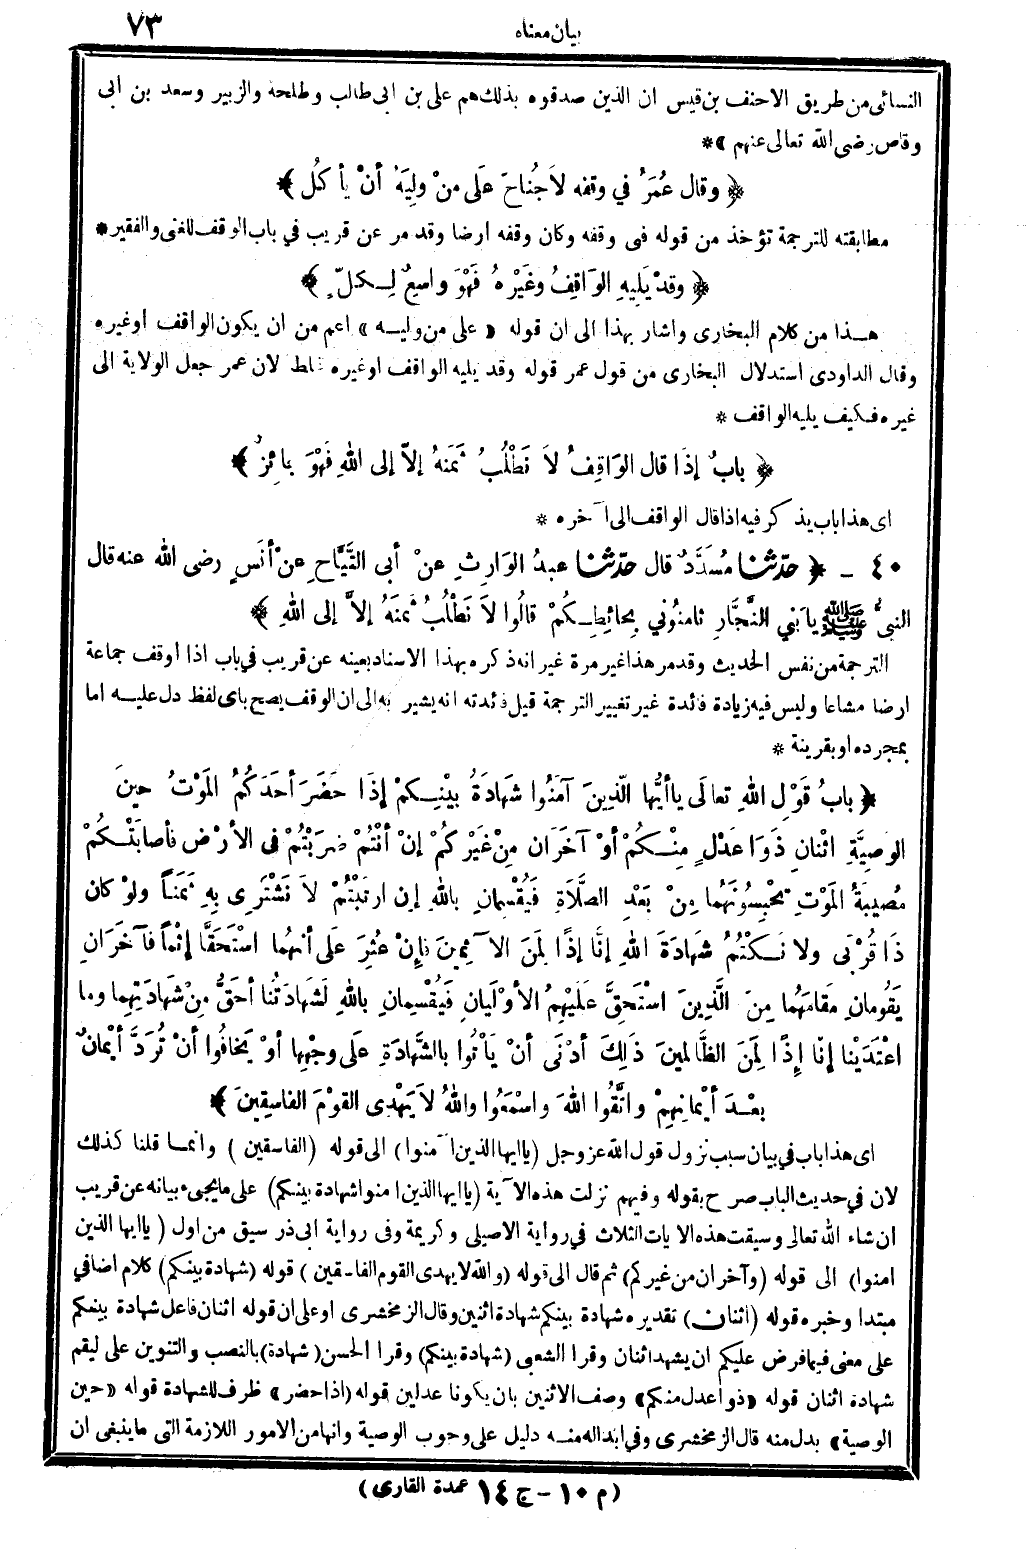 بيان معناه
٧٣
النسائى من طريق الاحنف بن قيس ان الذين صدقوه بذلك هم على بن ابى طالب وطلحة والزبير وسعد بن أبى
وقاص رضى الله تعالى عنهم ﴾*
﴿ وقال عُمَرُ في وقفه لاَ جُناحَ عَلَى منْ ولِيَهُ أنْ يأ كُلَ ﴾
مطابقته للترجمة تؤخذ من قوله فى وقفه وكان وقفه ارضا وقد مر عن قريب في باب الوقف للغنى والفقير *
﴿ وقدْ يَلِيهِ الوَاقِفُ وغَيْرُهُ فَهْوَ واسِعٌ لِكلّ ٍ ﴾
هـذا من كلام البخارى واشار بهذا الى ان قوله « على من وليـه » اعم من ان يكون الواقف اوغيره
وقال الداودى استدلال البخارى من قول عمر قوله وقد يليه الواقف او غيره غلط لان عمر جعل الولاية الى
غيره فكيف يليه الواقف *
﴿ بابٌ إذَا قال الوَاقِفُ لاَ نَطْلُبُ ثَمَنَهُ إلاّ إلى اللهِ فَهْوَ جائِزٌ ﴾
اى هذا باب يذكر فيه اذا قال الواقف الى آخره *
٤٠ - ﴿ حدّثنا مُسَدَّدٌ قال حدّثنا عبدُ الوَارِثِ عنْ أبى التَّيَّاحِ عنْ أنَسٍ رضى الله عنه قال
النبىُّ ﷺ يا بَني النَّجَّارِ ثامنُوني بِحائِطِـكُمْ قالُوا لاَ نَطْلُبُ ثَمنَهُ إلاَّ إلى اللهِ ﴾
الترجمة من نفس الحديث وقد مر هذا غير مرة غير انه ذكره بهذا الاسناد بعينه عن قريب في باب اذا أوقف جماعة
ارضا مشاعا وليس فيه زيادة فائدة غير تغيير الترجمة قيل فائدته انه يشير به الى ان الوقف يصح باى لفظ دل عليـه اما
بمجرده او بقرينة *
﴿ بابُ قَوْلِ اللهِ تعالَى يا أيُّها الَّذِينَ آمَنُوا شَهادَةُ بيْنِـكمْ إذَا حَضَرَ أحَدَكُمُ المَوْتُ حينَ
الوَصِيَّةِ اثْنانِ ذَوَا عَدْلٍ مِنْـكُمْ أوْ آخَرَانِ مِنْ غَيْرِكُمْ إنْ أنْتُمْ ضَرَبْتُمْ فى الأرْضِ فأصابَتْـكُمْ
مُصيبَةُ المَوْتِ تَحْبِسُونَهُما مِنْ بَعْدِ الصَّلَاةِ فَيُقْسِمانِ باللهِ إنِ ارتَبْتُمْ لاَ نَشْتَرِى بهِ ثَمَناً ولوْ كان
ذَا قُرْبَى ولا نَـكْتُمُ شَهادَةَ اللهِ إنَّا إذًا لِمَنَ الآثِمِينَ فإنْ عُثِرَ عَلَى أنهُما اسْتَحَقَّا إثْماً فآخَرَانِ
يَقُومانِ مَقامَهُما مِنَ الَّذِينَ اسْتَحَقَّ عَلَيْهِمُ الأوْلَيانِ فَيُقْسِمانِ باللهِ لَشَهادَتُنا أحَقُّ مِنْ شَهادَتِهِما وما
اعْتَدَيْنا إنَّا إذًا لِمَنَ الظَّالِمينَ ذَلِكَ أدْنَى أنْ يأْتُوا بالشَّهادَةِ عَلَى وجْهِها أوْ يَخافُوا أنْ تُرَدَّ أيْمانٌ
بعْـدَ أيْمانِهِمْ واتَّقُوا اللهَ واسْمَعُوا واللهُ لاَ يَهْدِى القوْمَ الفاسِقِينَ ﴾
اى هذا باب في بيان سبب نزول قول الله عز وجل (يا ايها الذين آمنوا) الى قوله (الفاسقين) وانمـا قلنا كذلك
لان في حديث الباب صرح بقوله وفيهم نزلت هذه الآية (يا ايها الذين امنوا شهادة بينكم) على ما يجىء بيانه عن قريب
ان شاء الله تعالى وسيقت هذه الايات الثلاث في رواية الاصيلى وكريمة وفى رواية ابى ذر سيق من اول (يا ايها الذين
امنوا) الى قوله (وآخران من غيركم) ثم قال الى قوله (والله لا يهدى القوم الفاسقين) قوله (شهادة بينكم) كلام اضافي
مبتدا وخبره قوله (اثنان) تقديره شهادة بينكم شهادة اثنين وقال الزمخشرى اوعلى ان قوله اثنان فاعل شهادة بينكم
على معنى فيما فرض عليكم ان يشهد اثنان وقرا الشعبى (شهادة بينكم) وقرا الحسن (شهادة) بالنصب والتنوين على ليقم
شهادة اثنان قوله «ذوا عدل منكم» وصف الاثنين بان يكونا عدلين قوله (اذا حضر» ظرف للشهادة قوله «حين
الوصية» بدل منه قال الزمخشرى وفى ابداله منـه دليل على وجوب الوصية وانها من الامور اللازمة التى ما ينبغى ان
(م ١٠ - ج ١٤ عمدة القارى)